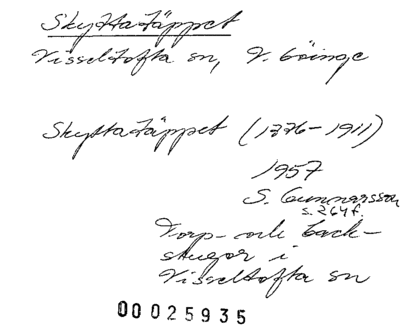 Skyttatäppet
Visseltofta sn, V. Göinge
Skyttatäppet (1776-1911)
1957
S. Gunnarsson
s. 264 f.
Torp- och back-
stugor i
Visseltofta sn
00025935